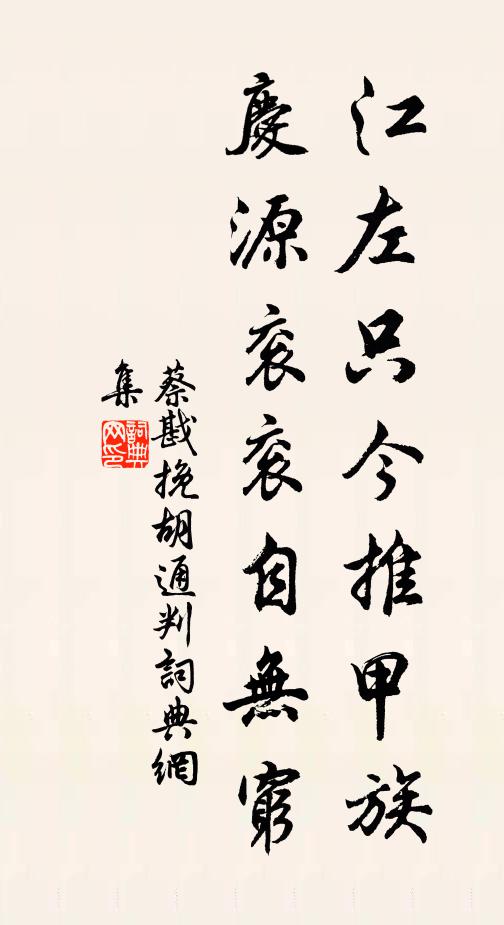 江左只今推甲族
慶源衮衮自無窮
蔡戡挽胡通判詞典網
集
詞典
网印